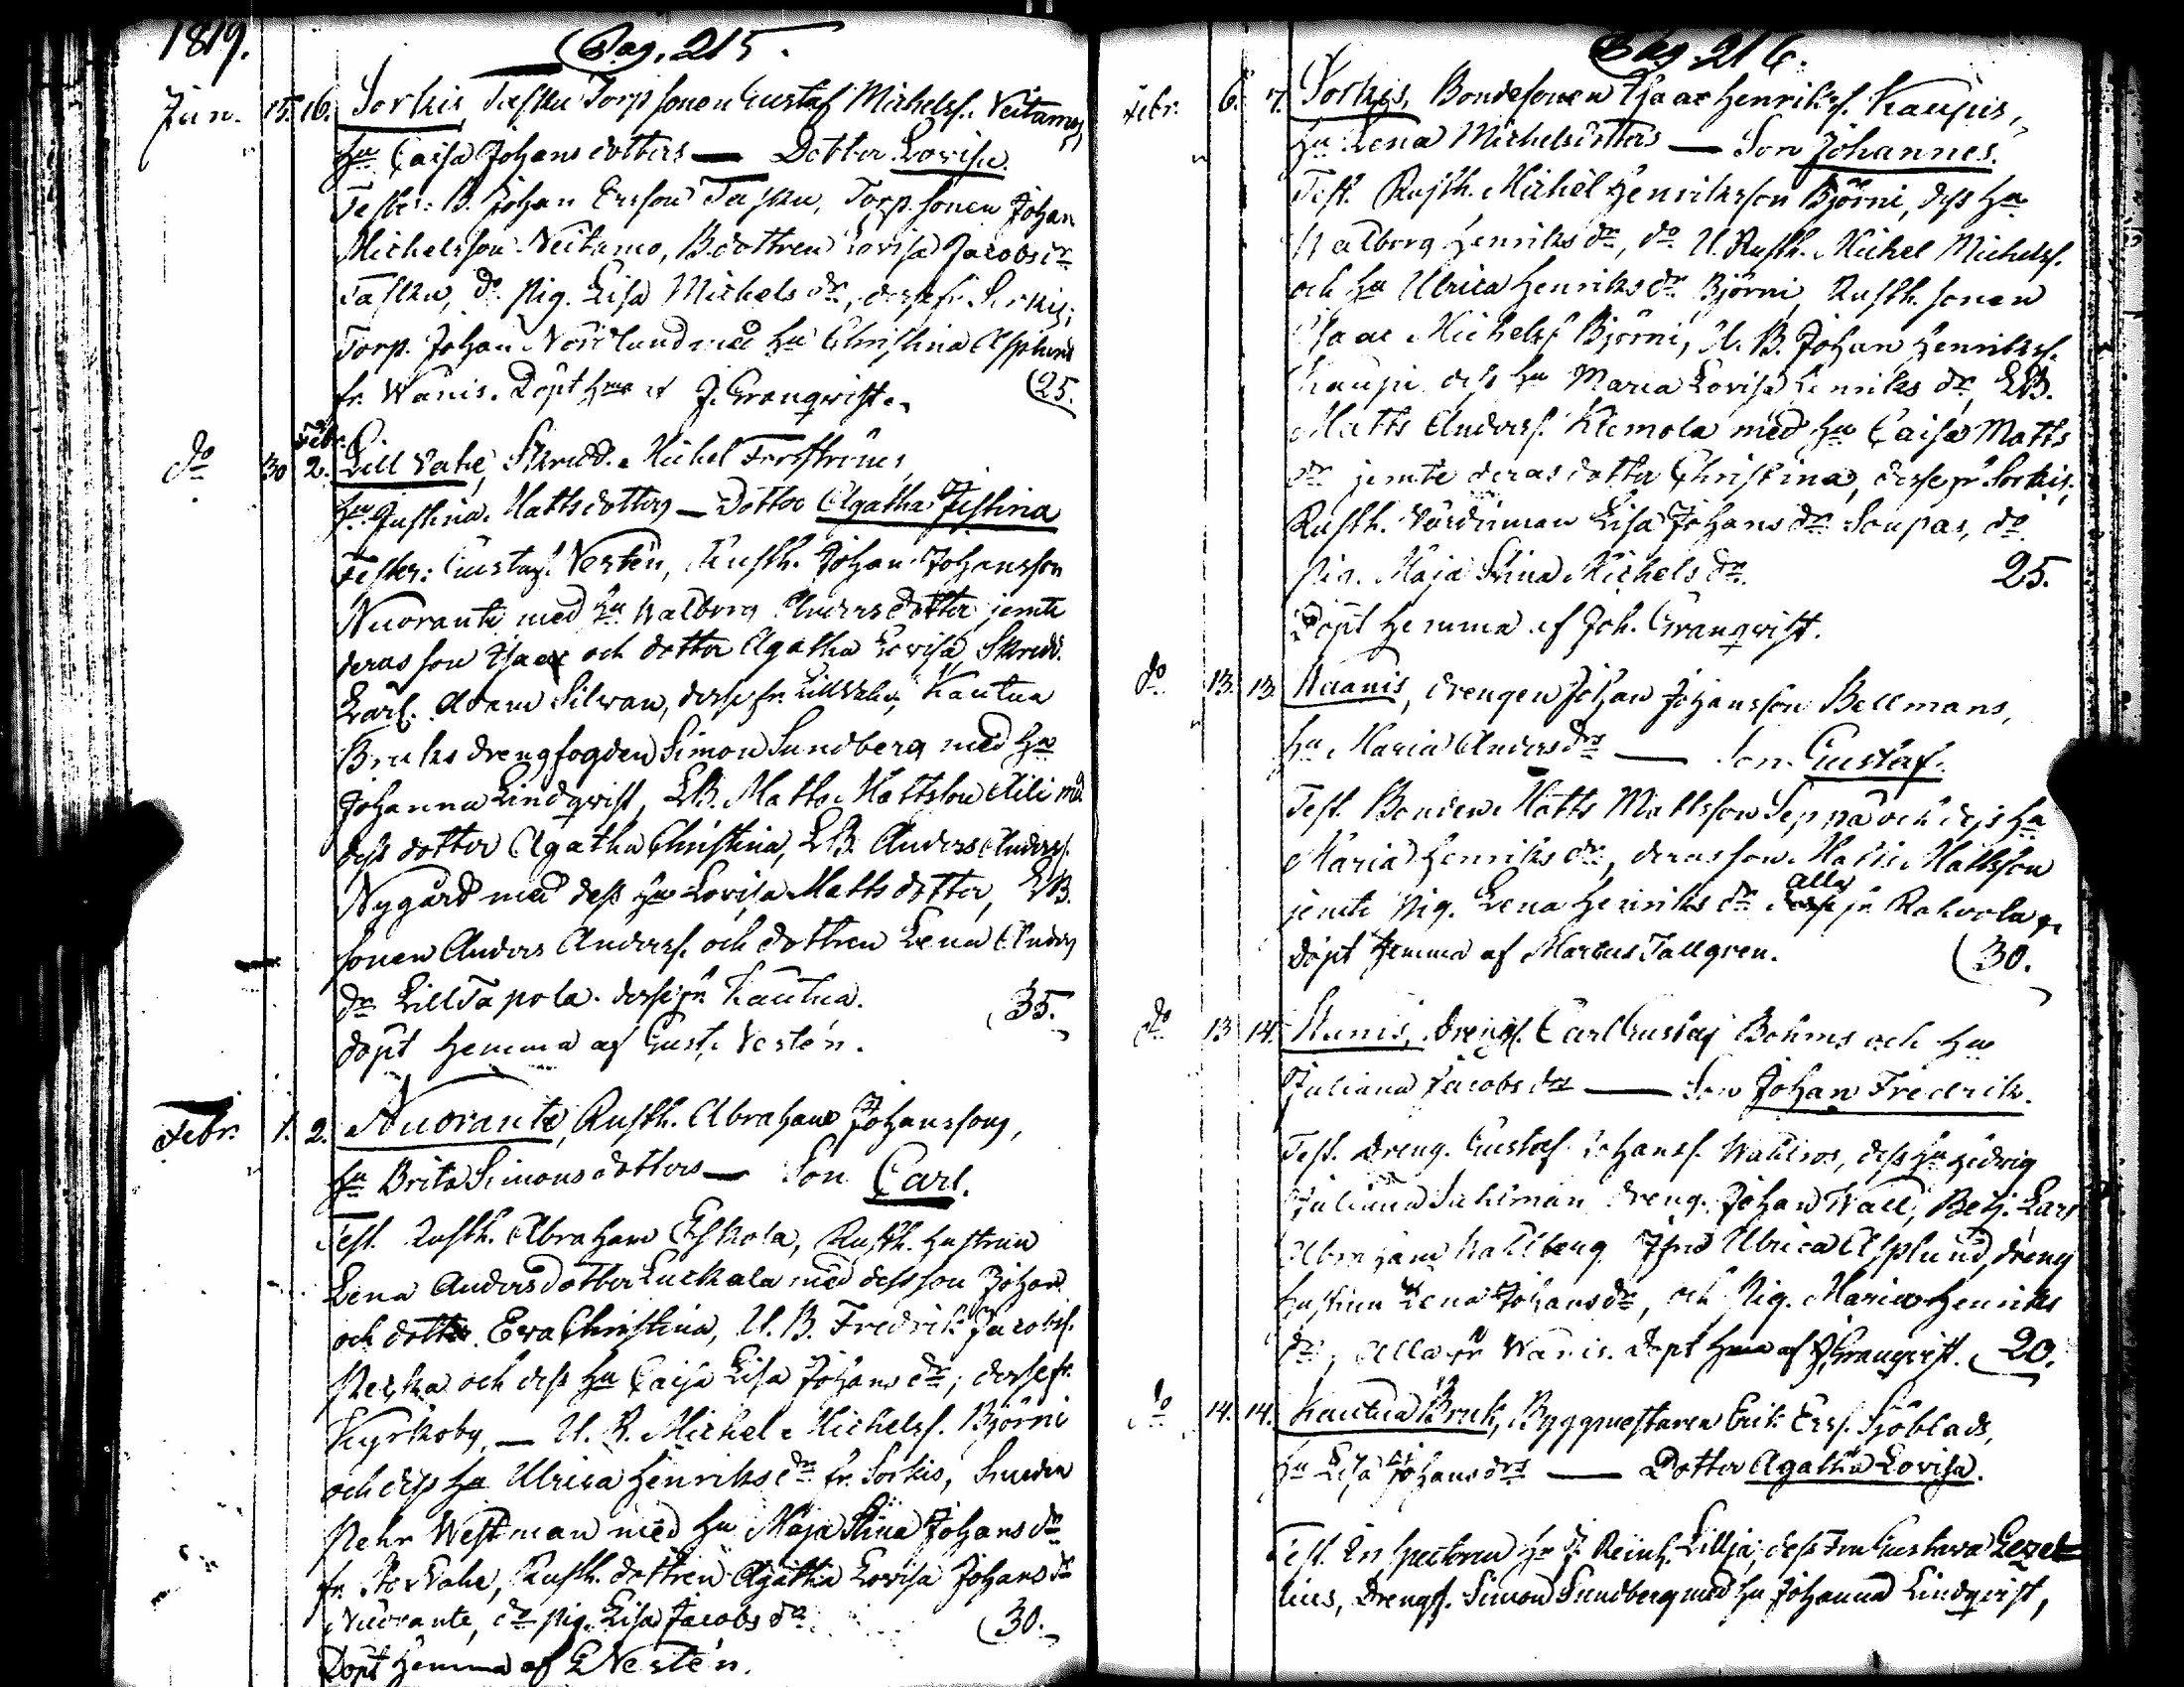 1819.
Pag. 215.
Jan. 15. 16. Sorkis, Tasku Torp sonen Gustaf Michelss. Neitamos
hu Caisa Johansdotters — Dotter Lovisa.
Testes: B. Johan Ersson Tasku, Torp. sonen Johan
Michelsson Neitamo, B. dottren Lovisa Jacobs dr
Tasku, do pig. Lisa Michels dr, desse fr. Sorkis;
Torp. Johan Nordlund med hu Christina Asplund
fr. Wanis. Döpt hma af J. Granqvist. (25.
do 30 Febr. 2. Lill Vahe, Skrädd. Michel Forsströms,
hu Justina Mattsdotters — Dotter Agatha Justina
Testes: Gustaf Nestén, Rusth. Johan Johansson
Nuorante med hu Walborg Andersdotter jemte
deras son Isaac och dotter Agatha Lovisa, Skrädd.
Lärl. Adam Silwan, desse fr. Lill Vahe, Kautua
Bruks drengfogden Simon Sundberg med hu
Johanna Lindqvist, LB. Matts Mattsson Mili med
dess dotter Agatha Christina, LB. Anders Anderss.
Nygård med dess hu Lovisa Mattsdotter, LB.
sonen Anders Anderss. och dottren Lena Anders
dr Lill Tapola. desse fr. Kautua. (35.
döpt hemma af Gust. Nestén.
Febr. 1. 2. Nuorante, Rusth. Abraham Johanssons,
hu Brita Simonsdotters — Son Carl.
Test. Rusth. Abraham Eskola, Rusth. hustrun
Lena Andersdotter Luckala med dess son Johan
och dotter Eva Christina, U. B. Fredrik Jacobss.
Perka och dess hu Caisa Lisa Johans dr; desse fr.
Kyrkoby. — U. R. Michel Michelss. Björni
och dess hu Ulrica Henriks dr fr. Sorkis, Smeden
Pehr Westman med hu Maja Stina Johans dr
fr. Stor Vahe, Rusth. dottren Agatha Lovisa Johans dr
Nuorante, do pig. Lisa Jacobs dr. (30.
Döpt hemma af G Nestén.
Pag. 216.
Febr. 6. 7. Sorkis, Bondesonen Isaac Henrikss. Kaupis,
hu Lena Michelsdotters — Son Johannes.
Test. Rusth. Michel Henriksson Björni, dess hu
Walborg Henriks dr, do U. Rusth. Michel Michelss.
och hu Ulrica Henriks dr Björni, Rusth. sonen
Isaac Michelss. Björni, U. B. Johan Henrikss.
Kaupi dess hu Maria Lovisa Henriks dr, LB.
Matts Anderss. Kiemola med hu Caisa Matts
dr jemte deras dotter Christina, desse fr Sorkis;
Rusth. värdinnan Lisa Johans dr Soupas, do
pig. Maja Stina Michels dr. 25.
Döpt hemma af Joh. Granqvist.
do 13. 13. Kuanis, drengen Johan Johansson Bellmans,
hu Maria Anders drs — Son Gustaf.
Test. Bonden Matts Mattsson Seppä och dess hu
Maria Henriks dr, deras son Matts Mattsson
jemte pig. Lena Henriks dr alla fr Rahvola,
döpt hemma af Marcus Tallgren. (30.
do 13 14. Wanis, drengf. Carl Gustaf Böhms och hu
Juliana Jacobs drs — Son Johan Fredrik.
Test. dreng. Gustaf Johanss. Wahlros, dess hu Hedvig
Juliana Sahlman dreng. Johan Wall, Betj. Lars
Abraham Wahlberg Jfru Ulrica Asplund, dreng
hustrun Lena Johans dr, och Pig. Maria Henriks
dr, alla fr Wanis. Döpt hma af J. Granqvist. 20.
do 14. 14. Kautua Bruk, Byggmestaren Erik Erss. Sjöblads,
hu Lisa Johans drs — Dotter Agatha Lovisa.
Test. Inspectoren Hr J. Reinh. Lillja, dess Fru Gustava Lezel-
lius, Drengf. Simon Sundberg med hu Johanna Lindqvist,